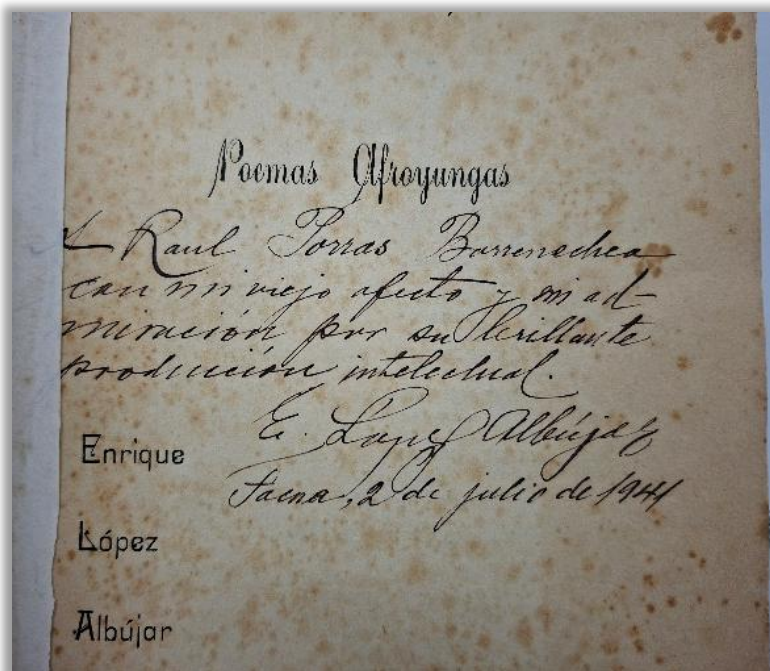 Poemas Afroyungas
A Raul Porras Barrenechea
con mi viejo afecto y mi ad-
miración por su brillante
producción intelectual.
E. Lopez Albújar
Tacna, 2 de julio de 1941
Enrique
López
Albújar